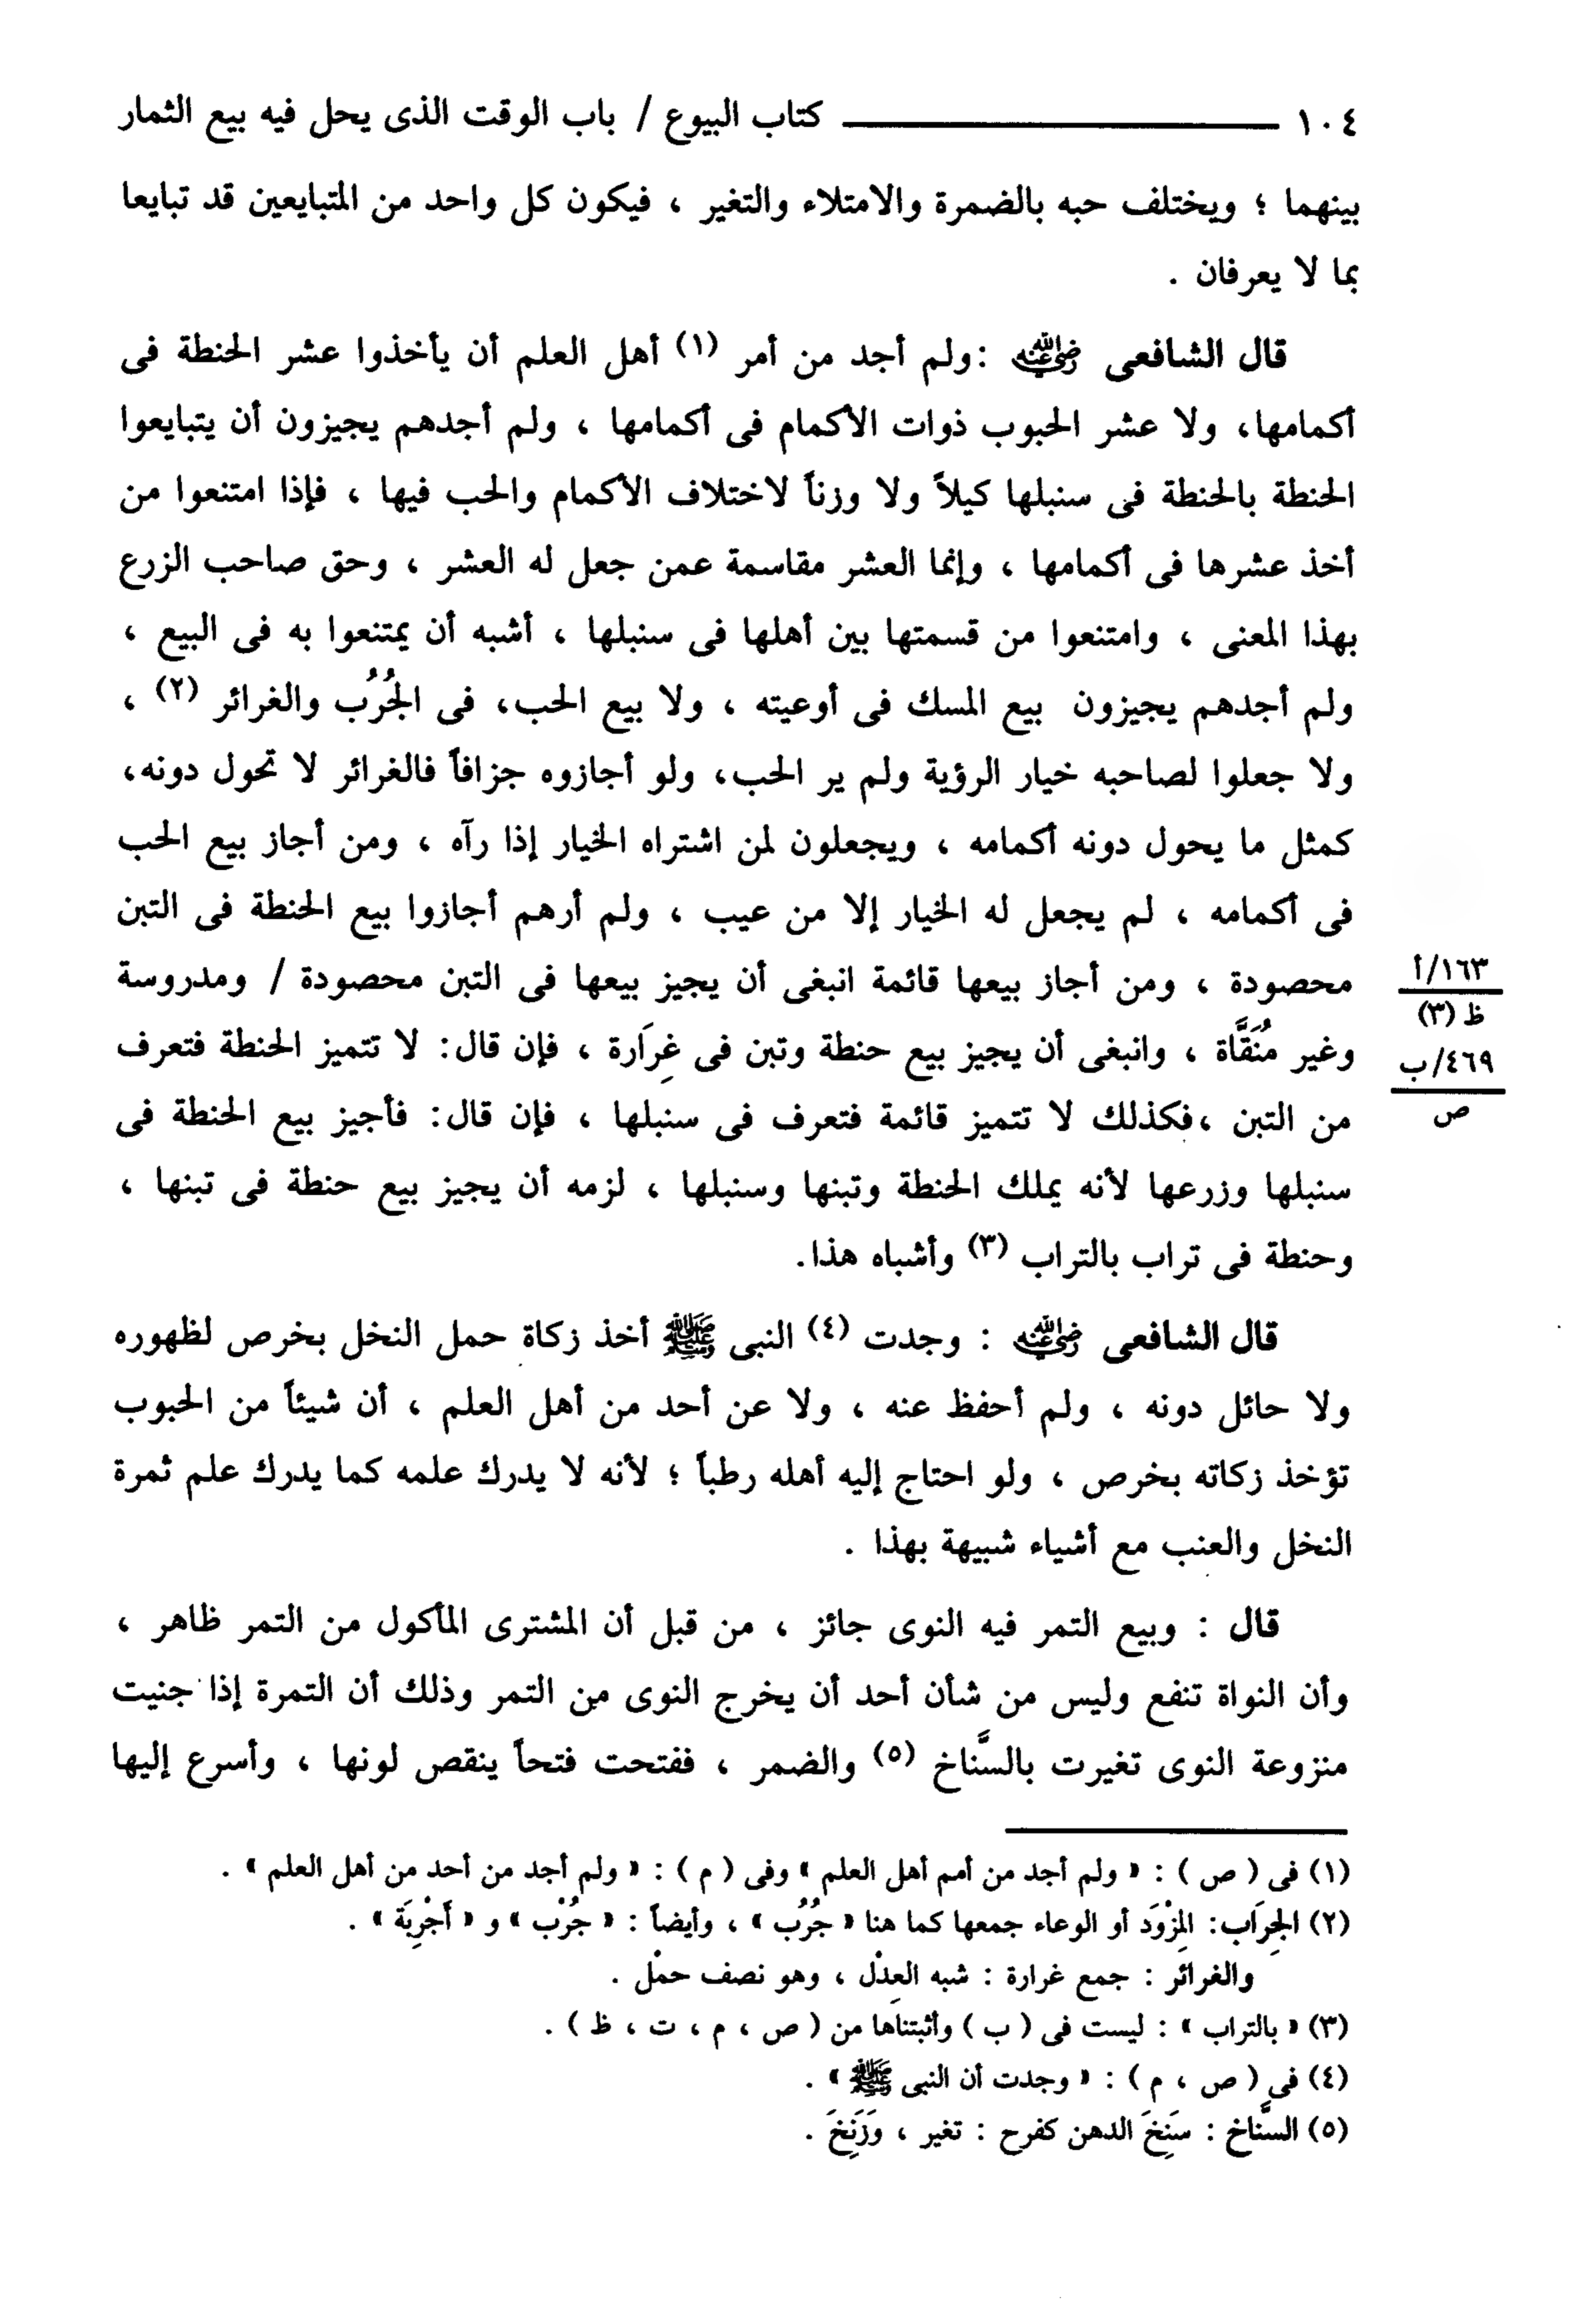 ١٠٤ ــــــــــــــ كتاب البيوع / باب الوقت الذى يحل فيه بيع الثمار
بينهما ؛ ويختلف حبه بالضمرة والامتلاء والتغير ، فيكون كل واحد من المتبايعين قد تبايعا
بما لا يعرفان .
قال الشافعى رضي الله عنه :ولم أجد من أمر (١) أهل العلم أن يأخذوا عشر الحنطة فى
أكمامها، ولا عشر الحبوب ذوات الأكمام فى أكمامها ، ولم أجدهم يجيزون أن يتبايعوا
الحنطة بالحنطة فى سنبلها كيلاً ولا وزناً لاختلاف الأكمام والحب فيها ، فإذا امتنعوا من
أخذ عشرها فى أكمامها ، وإنما العشر مقاسمة عمن جعل له العشر ، وحق صاحب الزرع
بهذا المعنى ، وامتنعوا من قسمتها بين أهلها فى سنبلها ، أشبه أن يمتنعوا به فى البيع ،
ولم أجدهم يجيزون بيع المسك فى أوعيته ، ولا بيع الحب، فى الجُرُب والغرائر (٢) ،
ولا جعلوا لصاحبه خيار الرؤية ولم ير الحب، ولو أجازوه جزافاً فالغرائر لا تحول دونه،
كمثل ما يحول دونه أكمامه ، ويجعلون لمن اشتراه الخيار إذا رآه ، ومن أجاز بيع الحب
فى أكمامه ، لم يجعل له الخيار إلا من عيب ، ولم أرهم أجازوا بيع الحنطة فى التبن
محصودة ، ومن أجاز بيعها قائمة انبغى أن يجيز بيعها فى التبن محصودة / ومدروسة
١٦٣/أ
ظ (٣)
وغير مُنَقَّاة ، وانبغى أن يجيز بيع حنطة وتبن فى غِرَارة ، فإن قال: لا تتميز الحنطة فتعرف
٤٦٩/ب
ص
من التبن ،فكذلك لا تتميز قائمة فتعرف فى سنبلها ، فإن قال: فأجيز بيع الحنطة فى
سنبلها وزرعها لأنه يملك الحنطة وتبنها وسنبلها ، لزمه أن يجيز بيع حنطة فى تبنها ،
وحنطة فى تراب بالتراب (٣) وأشباه هذا.
قال الشافعى رضي الله عنه : وجدت (٤) النبى ﷺ أخذ زكاة حمل النخل بخرص لظهوره
ولا حائل دونه ، ولم أحفظ عنه ، ولا عن أحد من أهل العلم ، أن شيئاً من الحبوب
تؤخذ زكاته بخرص ، ولو احتاج إليه أهله رطباً ؛ لأنه لا يدرك علمه كما يدرك علم ثمرة
النخل والعنب مع أشياء شبيهة بهذا .
قال : وبيع التمر فيه النوى جائز ، من قبل أن المشترى المأكول من التمر ظاهر ،
وأن النواة تنفع وليس من شأن أحد أن يخرج النوى من التمر وذلك أن التمرة إذا جنيت
منزوعة النوى تغيرت بالسَّناخ (٥) والضمر ، ففتحت فتحاً ينقص لونها ، وأسرع إليها
(١) فى ( ص ) : « ولم أجد من أمم أهل العلم » وفى ( م ) : « ولم أجد من أحد من أهل العلم » .
(٢) الجِرَاب: المِزْوَد أو الوعاء جمعها كما هنا « جُرُب » ، وأيضاً : « جُرْب » و « أَجْرِبَة » .
والغرائر : جمع غرارة : شبه العِدْل ، وهو نصف حمْل .
(٣) « بالتراب » : ليست فى ( ب ) وأثبتناها من ( ص ، م ، ت ، ظ ) .
(٤) فى ( ص ، م ) : « وجدت أن النبى ﷺ » .
(٥) السَّناخ : سَنِخَ الدهن كفرح : تغير ، وَزَنِخَ .